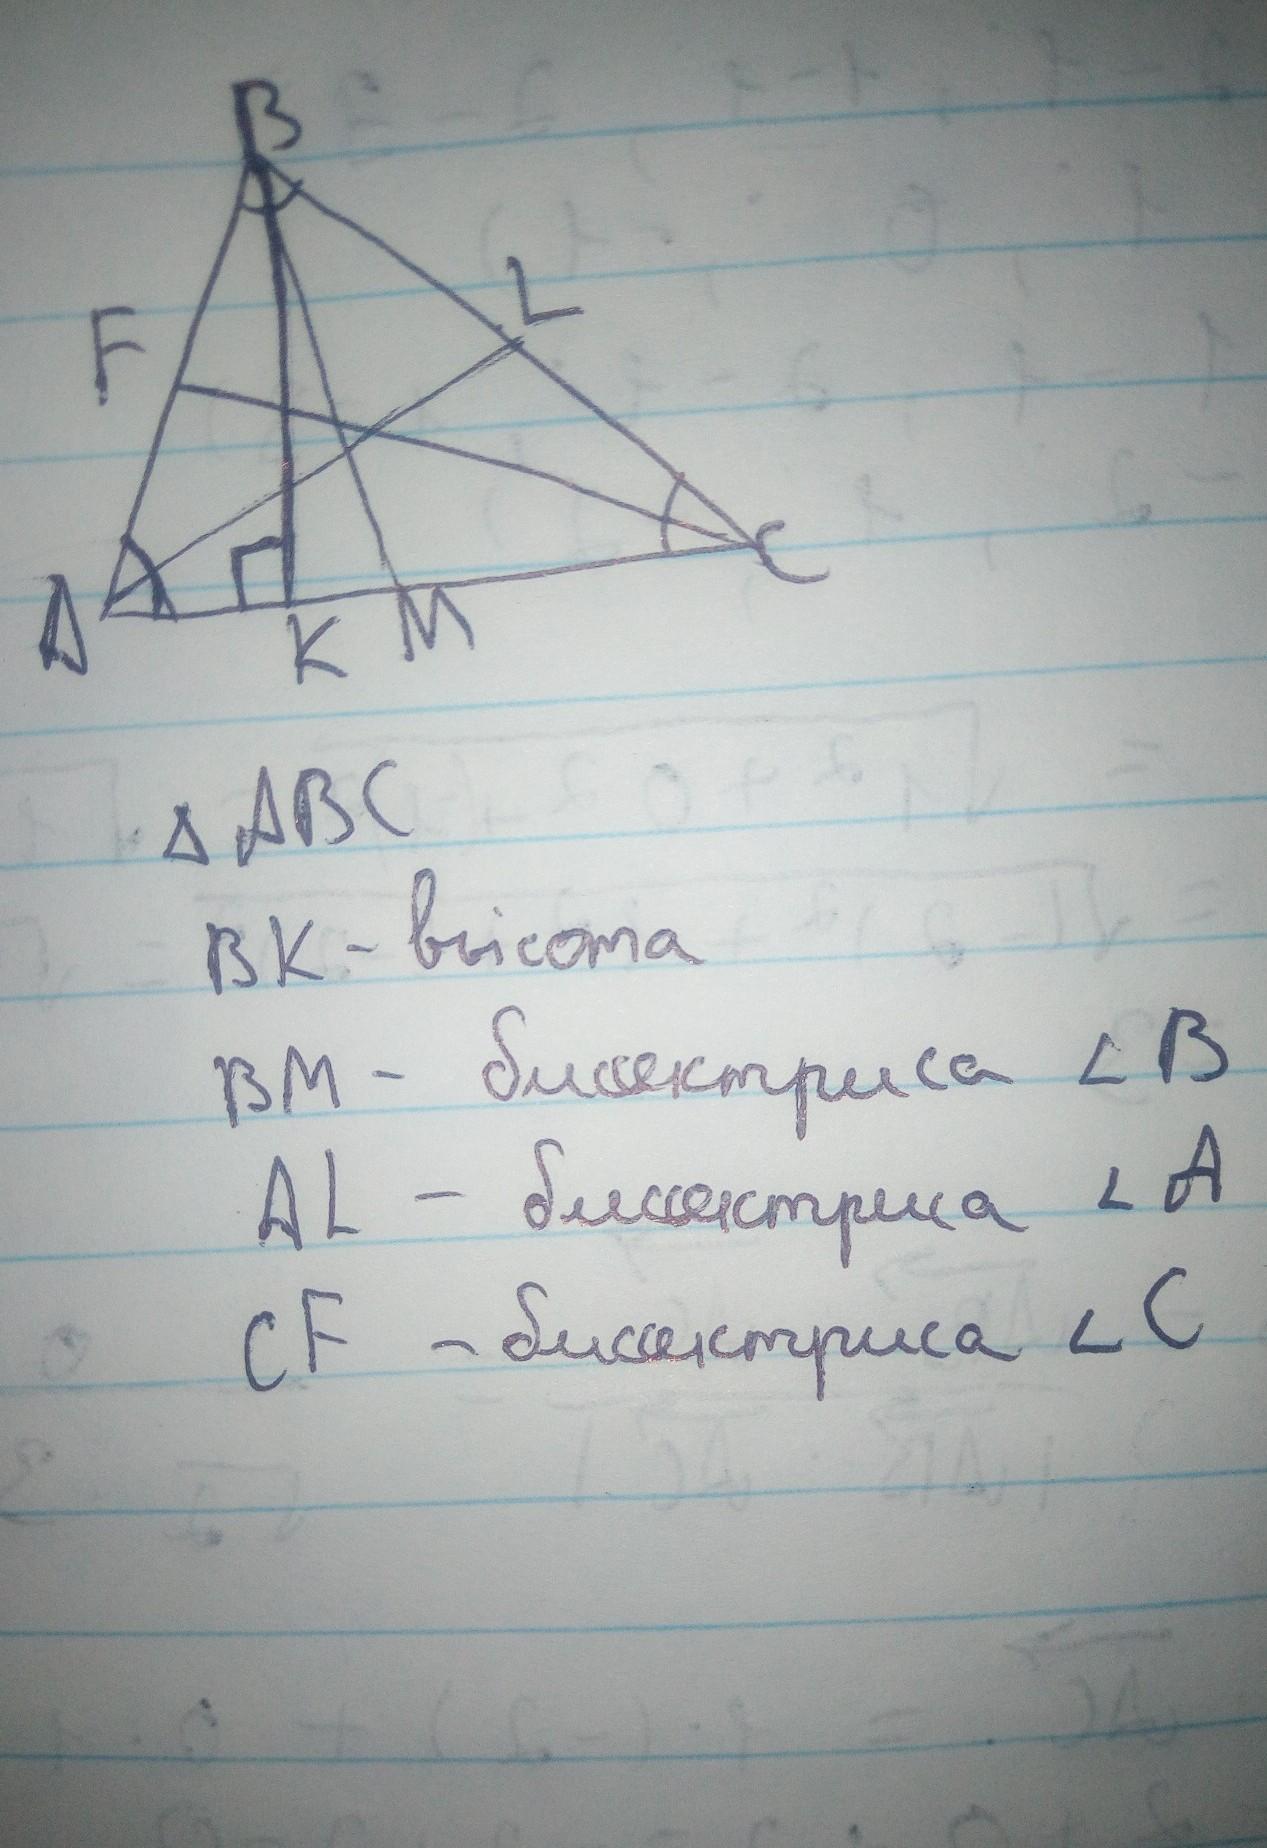 B
F
L
A
K
M
C
Δ ABC
BK - высота
BM - биссектриса ∠ B
AL - биссектриса ∠ A
CF - биссектриса ∠ C